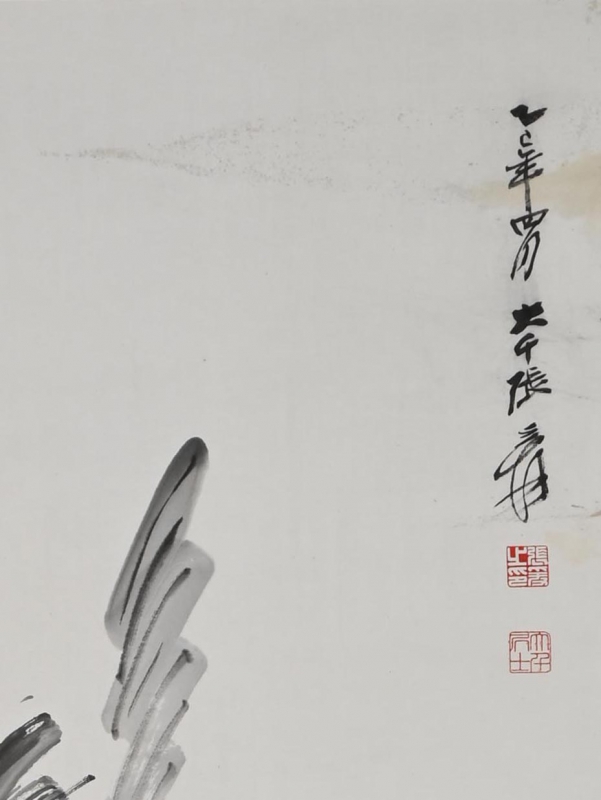 乙巳年四月大千張爰
張爰之印
大千居士